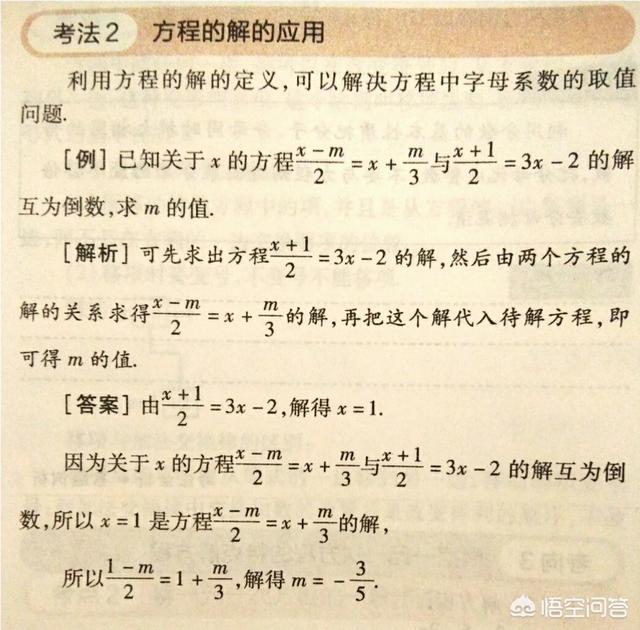 考法2 方程的解的应用
利用方程的解的定义,可以解决方程中字母系数的取值
问题.
[例]已知关于 x 的方程\frac{x-m}{2}=x+\frac{m}{3}与\frac{x+1}{2}=3x-2 的解
互为倒数,求 m 的值.
[解析]可先求出方程\frac{x+1}{2}=3x-2 的解,然后由两个方程的
解的关系求得\frac{x-m}{2}=x+\frac{m}{3}的解,再把这个解代入待解方程,即
可得 m 的值.
[答案]由\frac{x+1}{2}=3x-2,解得 x=1.
因为关于 x 的方程\frac{x-m}{2}=x+\frac{m}{3}与\frac{x+1}{2}=3x-2 的解互为倒
数,所以 x=1 是方程\frac{x-m}{2}=x+\frac{m}{3}的解,
所以\frac{1-m}{2}=1+\frac{m}{3},解得 m=-\frac{3}{5}.
悟空问答